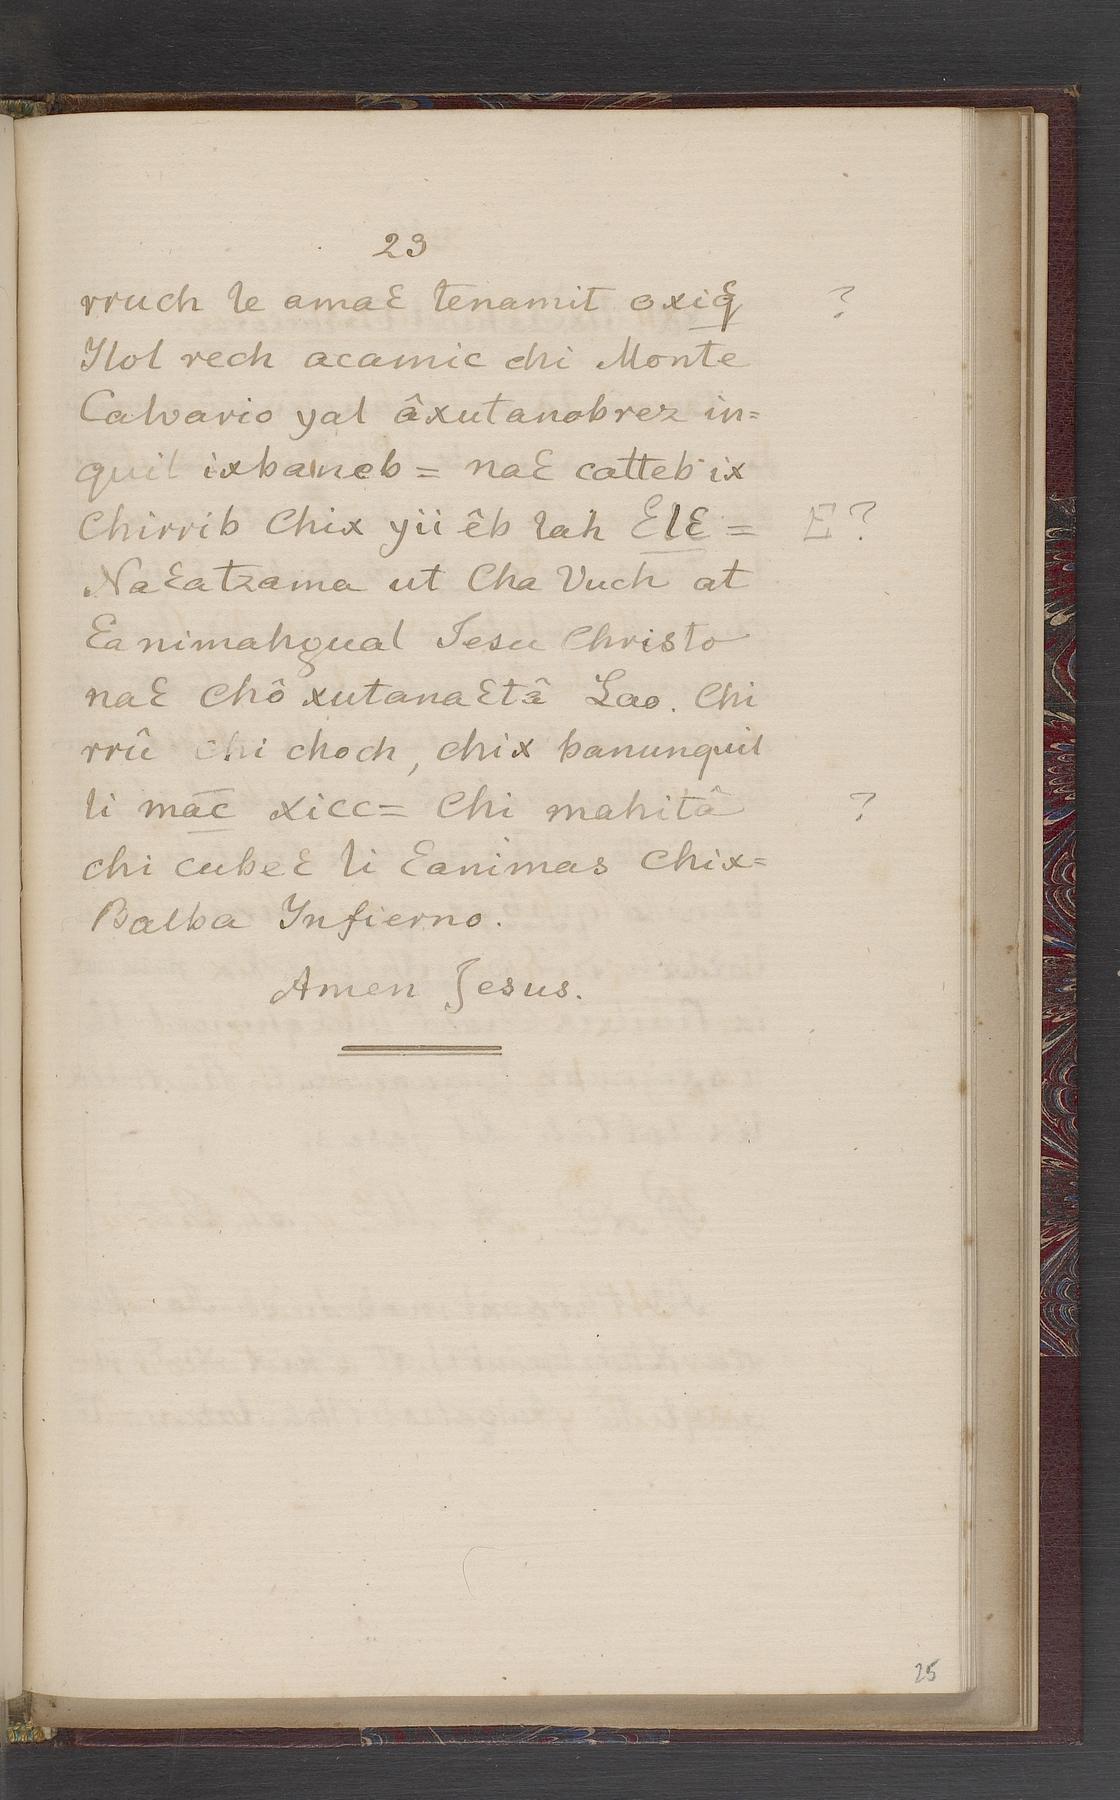 23
rruch le amaɛ tenamit oxiq ?
Ylol rech acamic chi Monte
Calvario yal âxutanobrez in=
quil ixbaneb = naɛ catteb ix
Chirrib Chix yii êb lah ƐlƐ = E ?
NaƐatzama ut Cha Vuch at
Ɛanimahgual Jesu Christo
naƐ Chô xutanaƐtâ Lao. Chi
rrû chi choch, chix banunquil
li mac̄ xicc= Chi mahitâ ?
chi cubeƐ li Ɛanimas Chix=
Balba Ynfierno.
Amen Jesus.
25